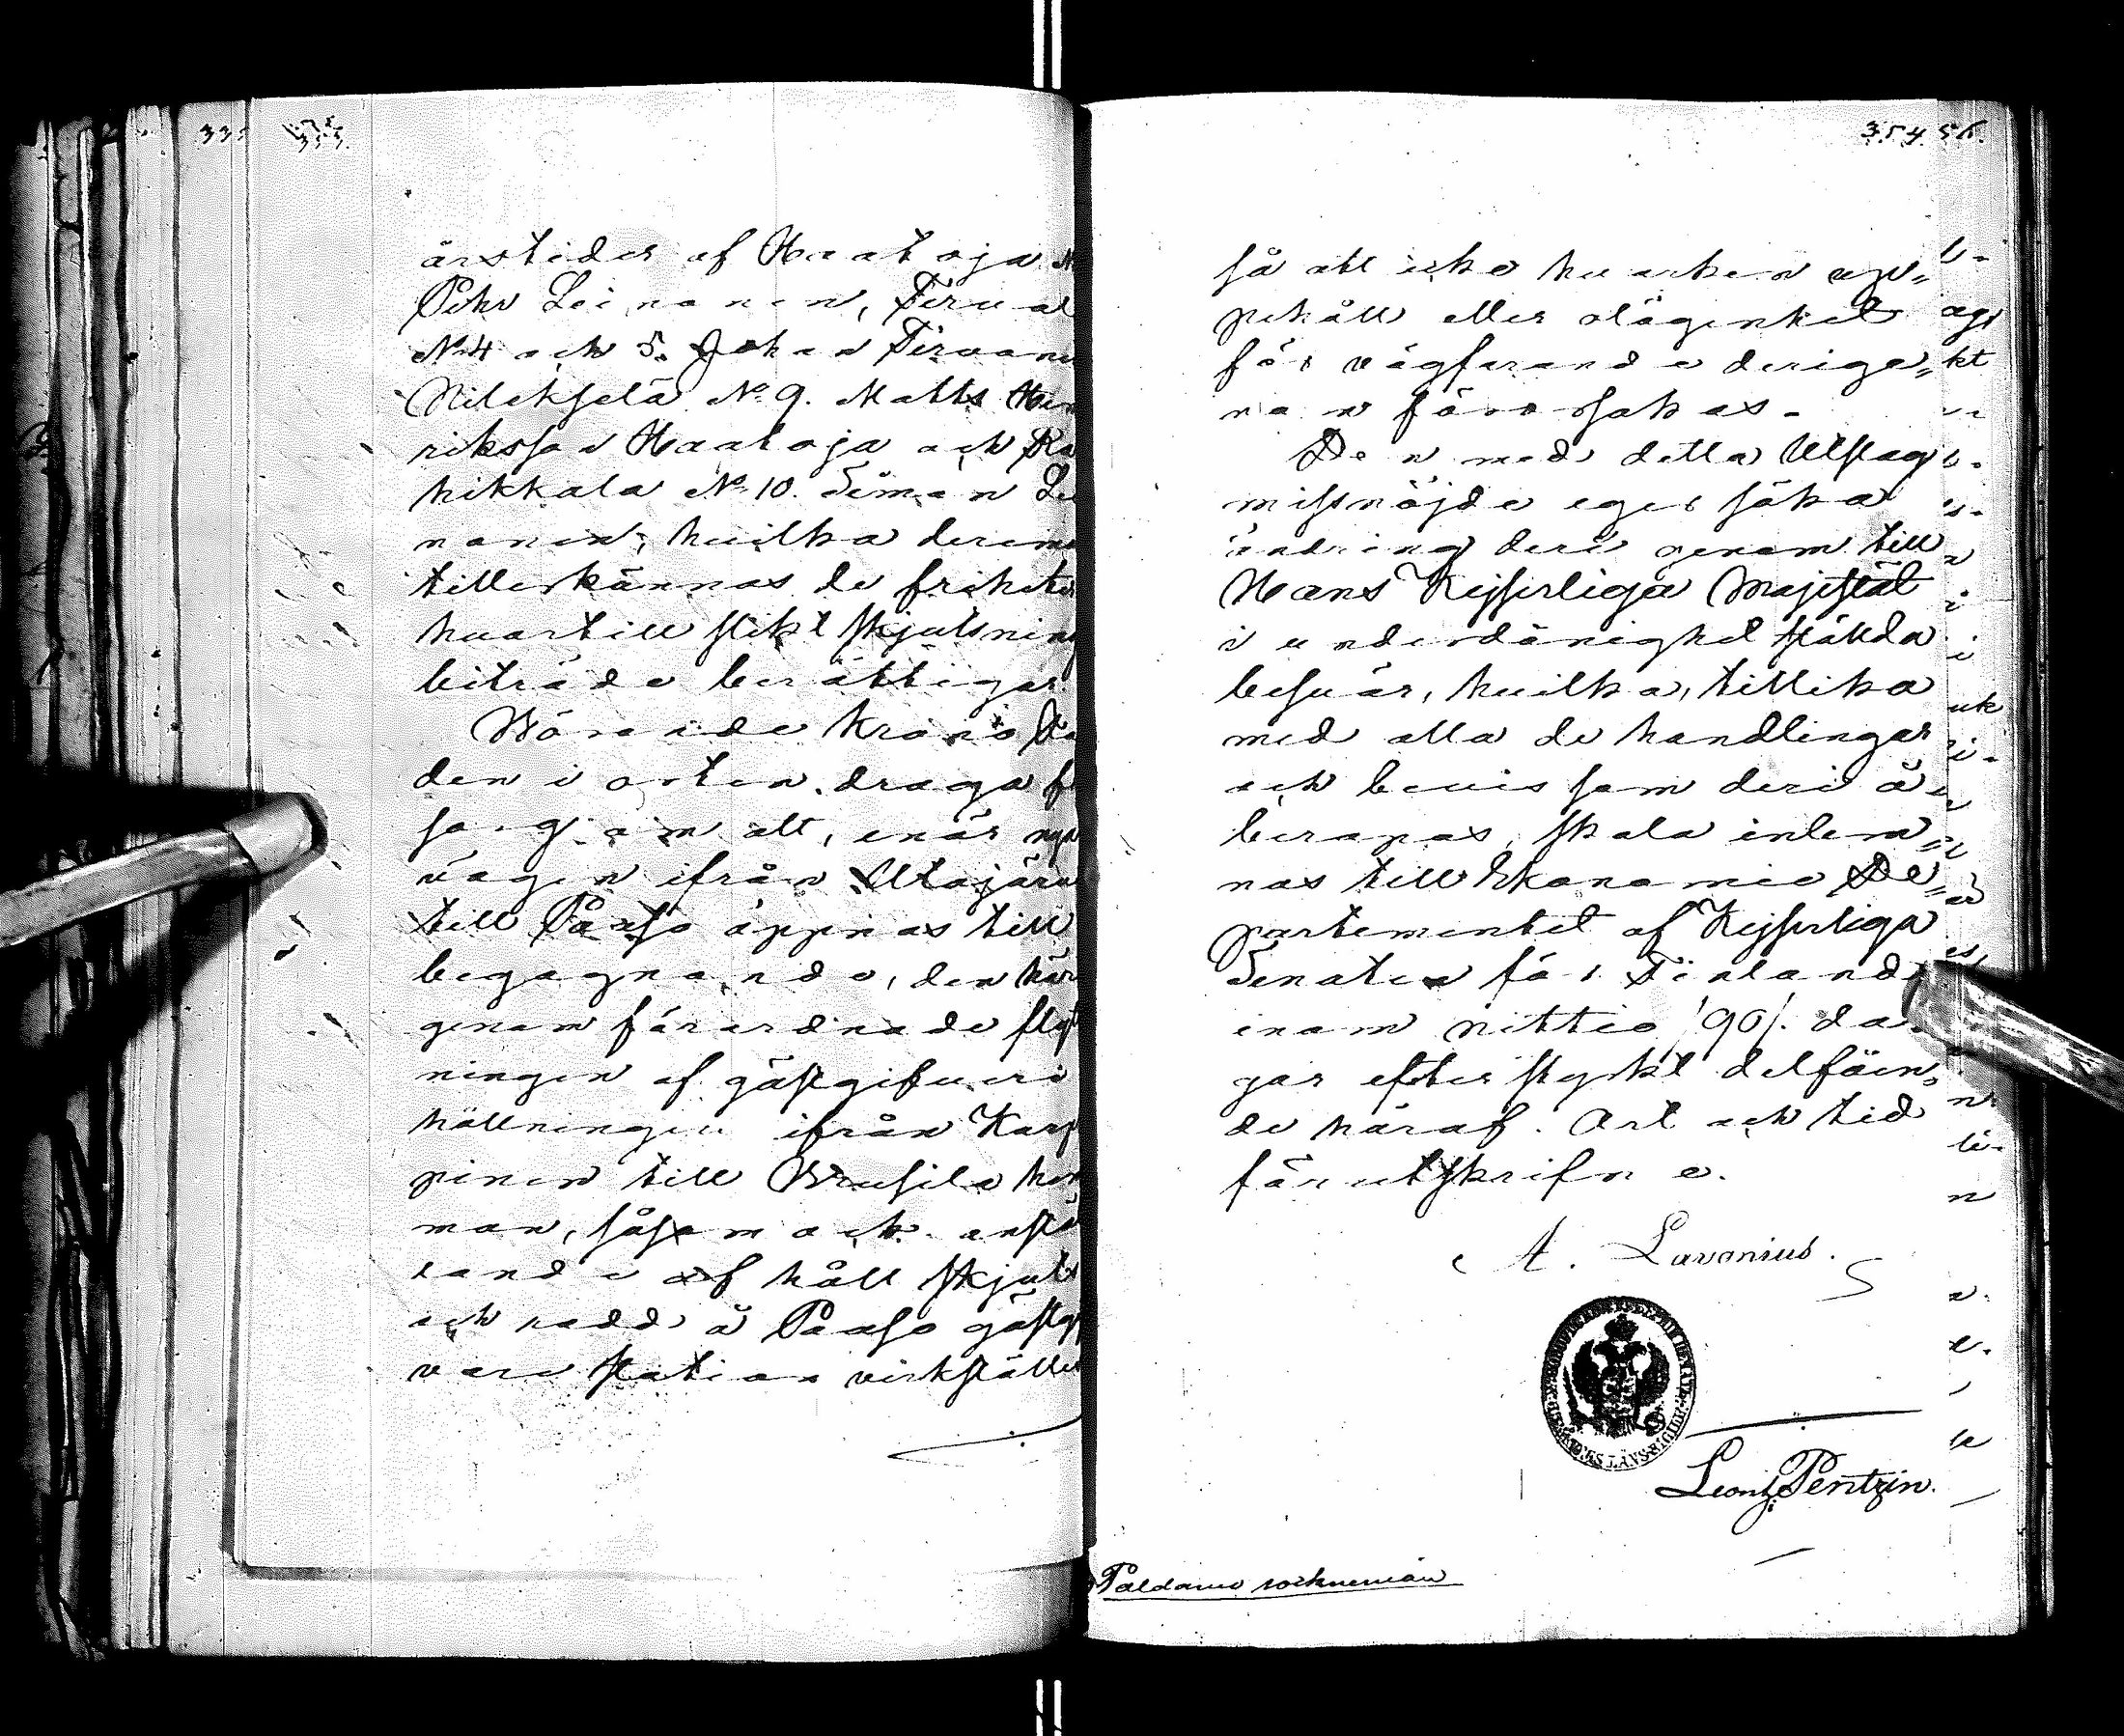 353.
årstider af Haatoja N
Pehr Leinonen, Terva
No 4 och 5. Johan Tervone
Nilekselä No 9. Matts Hen
riksson Haatoja och Ra
hikkala No 10. Simon Le
nonen, hvilka deremo
tillerkännas de friheter
hvartill slikt skjutsning
biträde berättigar.
Börande Krono be
den i orten draga f
sorg om att, enär nya
vägen ifrån Utajärv
till Paaso öppnas till
begagnande, den här
genom förordnade flyt
ningen af gästgifveri
hållningen ifrån Karp
pinen till Brusila hem
man, såsom ock anstä
lande af håll skjuts
och radd å Paaso gästgi
veri station verkställes
354
så att icke hvarken up„
pehåll eller olägenhet
för vägfarande derige„
nom förorsakas.
Den med detta Utslag
missnöjde eger söka
ändring deri genom till
Hans Kejserliga Majestät
i underdånighet ställda
besvär, hvilka, tillika
med alla de handlingar
och bevis som deri å
beropas, skola inlem„
nas till Ekonomie De„
partementet af Kejserliga
Senaten för Finland
inom nittio /90/. da
gar efter styrkt delfåen„
de häraf. Ort och tid
förutskrifne.
A. Lavonius.
Leont. Pentzin.
Paldamo sockneman